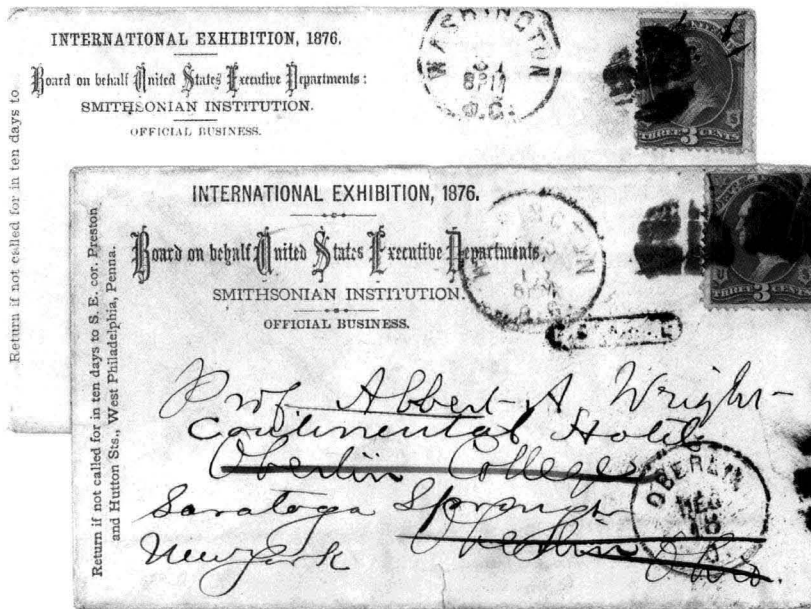 INTERNATIONAL EXHIBITION, 1876.
Board on behalf United States Executive Departments:
SMITHSONIAN INSTITUTION.
OFFICIAL BUSINESS.
Return if not called for in ten days to
WASHINGTON
8PM
D.C.
THREE 3 CENTS
INTERNATIONAL EXHIBITION, 1876.
Board on behalf United States Executive Departments,
SMITHSONIAN INSTITUTION.
OFFICIAL BUSINESS.
Return if not called for in ten days to S. E. cor. Preston
and Hutton Sts., West Philadelphia, Penna.
THREE 3 CENTS
Prof. Albert A Wright
Continental Hotel
Oberlin College
Saratoga Springs
Oberlin Ohio.
New York
OBERLIN
18